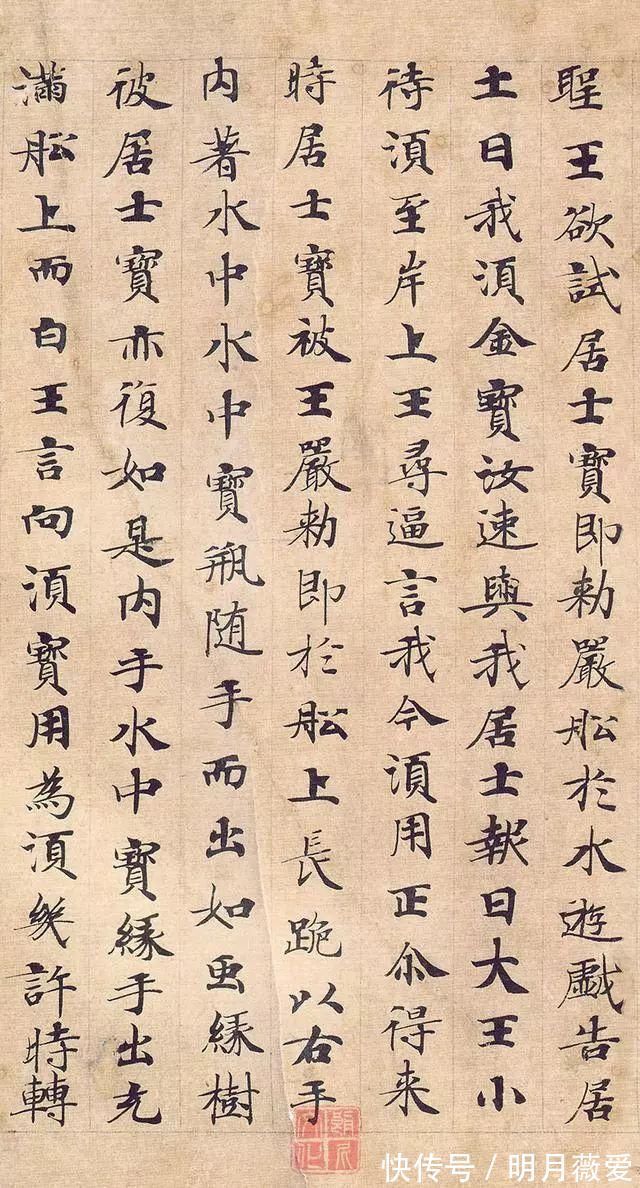 聖王欲試居士寶即勑嚴舩扵水遊戱告居
士曰我湏金寶汝速與我居士報曰大王小
待湏至岸上王尋逼言我今湏用正尒得来
時居士寶被王嚴勑即扵舩上長跪以右手
内著水中水中寶瓶随手而出如虫緣樹
彼居士寶亦復如是内手水中寶緣手出充
滿舩上而白王言向湏寶用為湏幾許時轉
快传号／明月薇爱